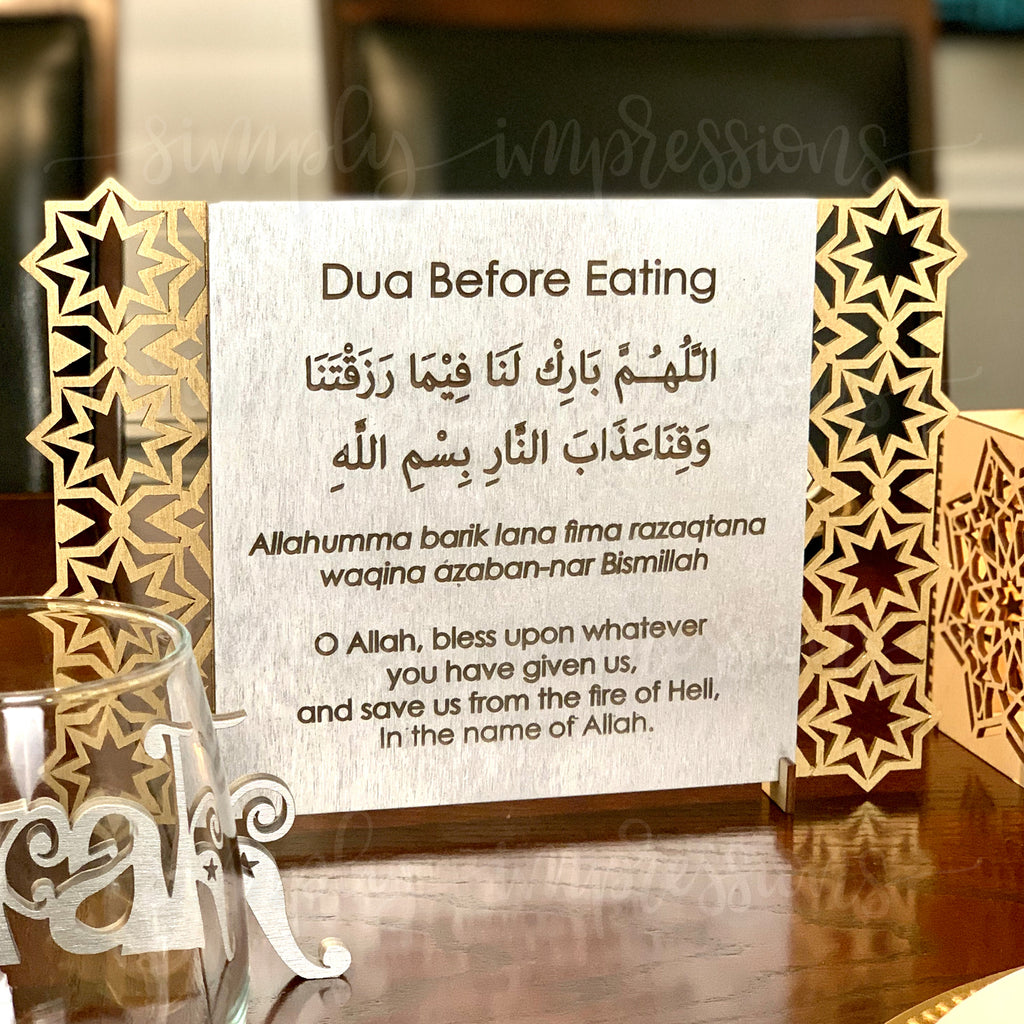 simply impressions
Dua Before Eating
اللَّهُمَّ بَارِكْ لَنَا فِيْمَا رَزَقْتَنَا
وَقِنَاعَذَابَ النَّارِ بِسْمِ اللَّهِ
Allahumma barik lana fima razaqtana
waqina áẓaban-nar Bismillah
O Allah, bless upon whatever
you have given us,
and save us from the fire of Hell,
In the name of Allah.
simply impressions